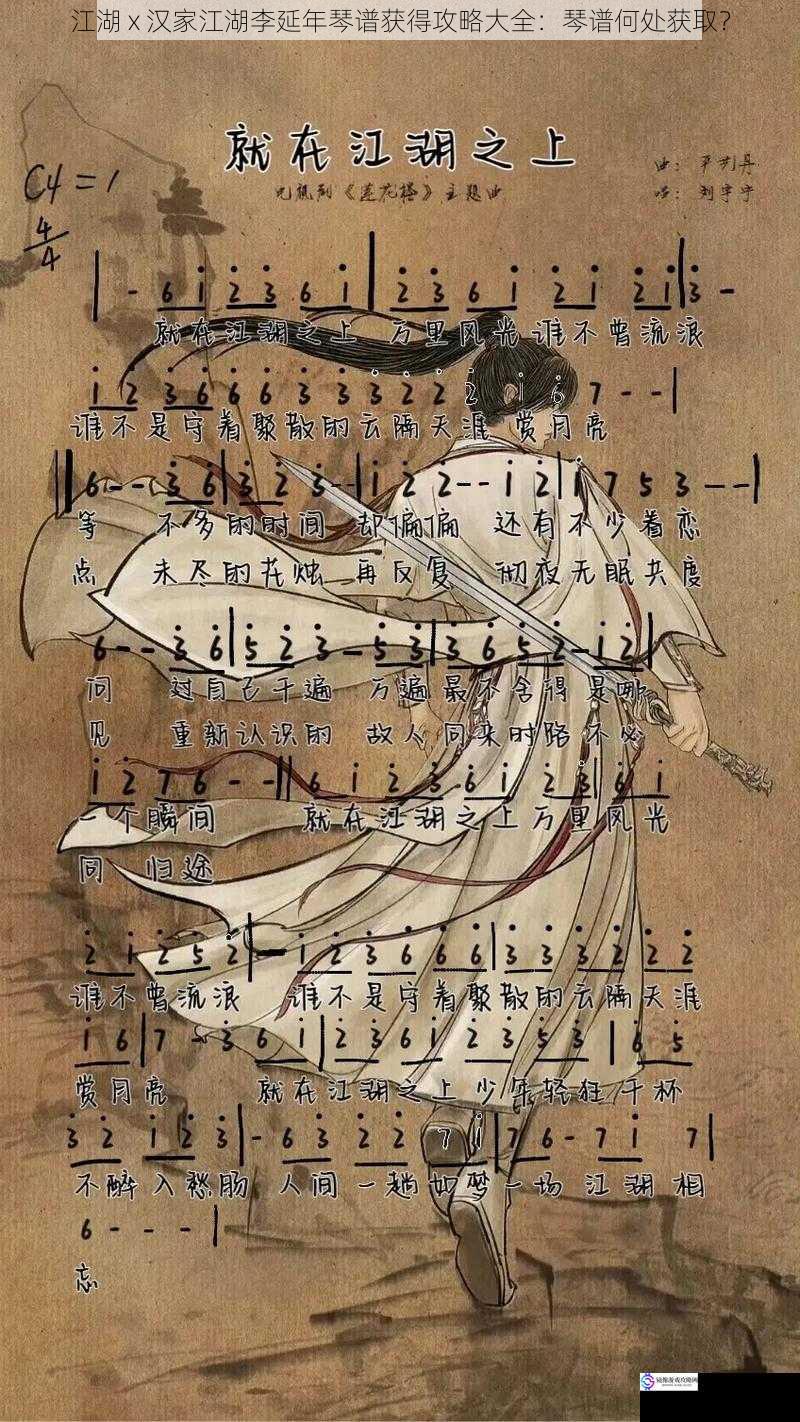 江湖 x 汉家江湖李延年琴谱获得攻略大全：琴谱何处获取？
就在江湖之上
曲：
电视剧《莲花楼》主题曲
唱：刘宇宁
C4=1
4/4
| - 6 i 2 3 6 i | 2 3 6 i 2 i 2 i | 3 -
就在江湖之上 万里风光谁不曾流浪
i 2 3 6 6 6 3 3 3 2 2 2 i 6 7 - - |
谁不是守着聚散的云隔天涯 赏月亮
|| 6 - - 3 6 | 3 2 3 - - | i 2 2 - - i 2 | i 7 5 3 - - |
等 不多的时间 却偏偏 还有不少眷恋
点 未尽的花烛 再反复 彻夜无眠共度
6 - - 3 6 | 5 2 3 - 5 3 | 3 6 5 2 - i 2 |
问 过自己千遍 万遍最不舍得是哪
见 重新认识的 故人问来时路不必
i 2 7 6 - - || 6 i 2 3 6 i 2 3 | 6 i
一个瞬间 就在江湖之上万里风光
同 归途
2 i 2 5 2 | - i 2 3 6 6 6 | 3 3 3 2 2 2
谁不曾流浪 谁不是守着聚散的云隔天涯
i 6 | 7 - 3 6 i | 2 3 6 i 2 3 5 3 | 6 5
赏月亮 就在江湖之上少年轻狂千杯
3 2 i 2 3 | - 6 3 2 2 7 i | 7 6 - 7 i 7 |
不醉入愁肠 人间一趟如梦一场 江湖相
6 - - - |
忘